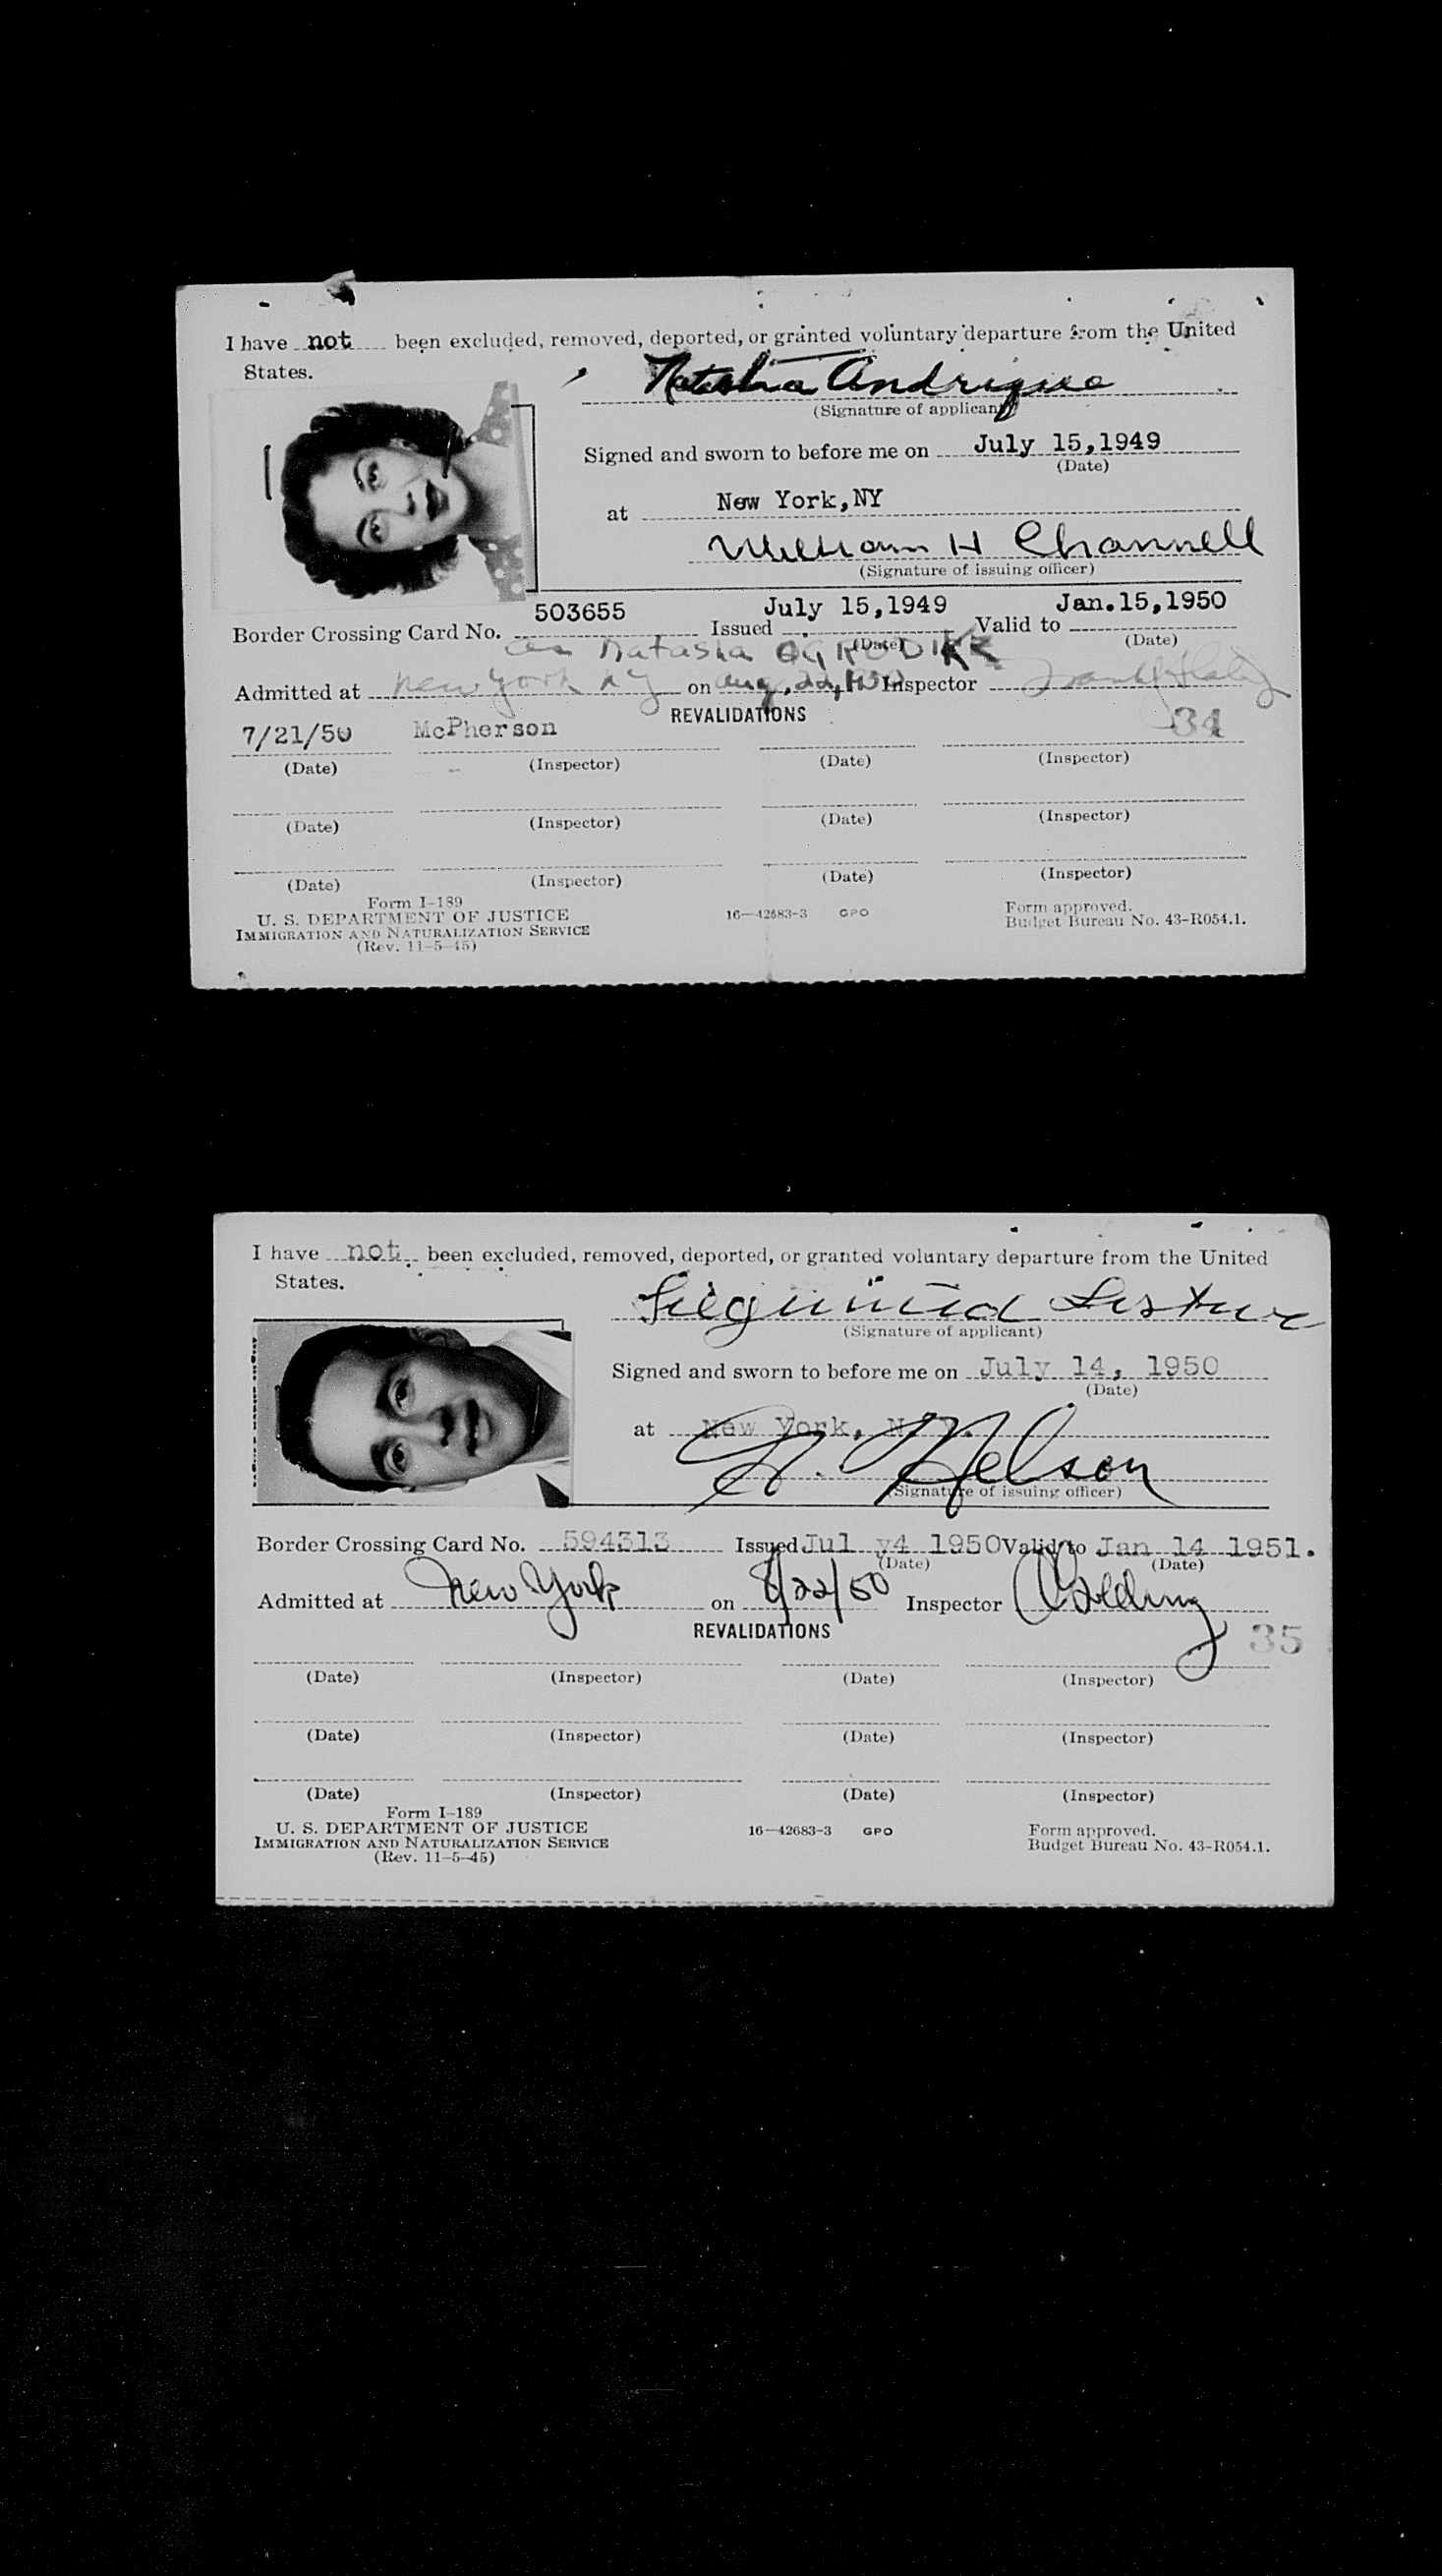 I have not been excluded, removed, deported, or granted voluntary departure from the United
States.
Natasha
(Signature of applicant)
Signed and sworn to before me on July 15,1949
(Date)
at New York,NY
William H Channell
(Signature of issuing officer)
Border Crossing Card No. 503655 Issued July 15,1949 Valid to Jan.15,1950
(Date) (Date)
as Natasha
Admitted at New York NY on Aug, 22, 1950 Inspector
REVALIDATIONS
34
7/21/50 McPherson
(Date) (Inspector) (Date) (Inspector)
(Date) (Inspector) (Date) (Inspector)
(Date) (Inspector) (Date) (Inspector)
Form I-189
U. S. DEPARTMENT OF JUSTICE
IMMIGRATION AND NATURALIZATION SERVICE
(Rev. 11-5-45)
16—42683-3 GPO
Form approved.
Budget Bureau No. 43-R054.1.
I have not been excluded, removed, deported, or granted voluntary departure from the United
States.
(Signature of applicant)
Signed and sworn to before me on July 14, 1950
(Date)
at New York, N.
Nelson
(Signature of issuing officer)
Border Crossing Card No. 594313 Issued Jul y4 1950 Valid to Jan 14 1951.
(Date) (Date)
Admitted at New York on 8/22/50 Inspector
REVALIDATIONS
35
(Date) (Inspector) (Date) (Inspector)
(Date) (Inspector) (Date) (Inspector)
(Date) (Inspector) (Date) (Inspector)
Form I-189
U. S. DEPARTMENT OF JUSTICE
IMMIGRATION AND NATURALIZATION SERVICE
(Rev. 11-5-45)
16—42683-3 GPO
Form approved.
Budget Bureau No. 43-R054.1.